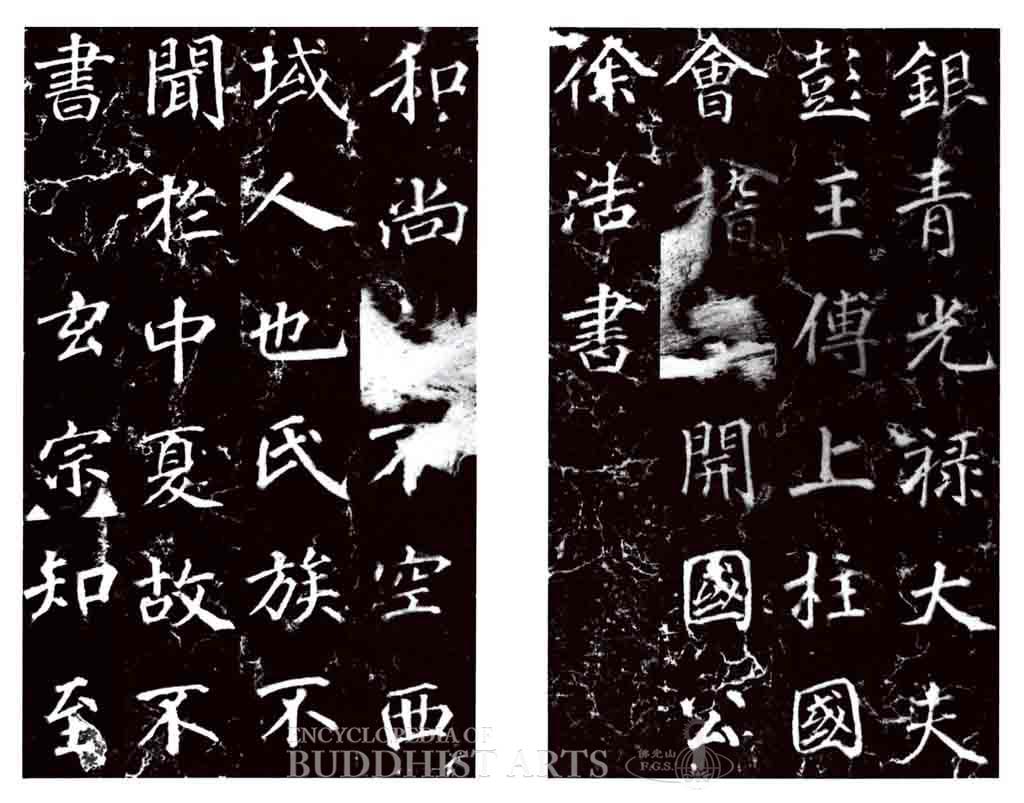 銀青光禄大夫
彭王傅上柱國
會稽開國公
徐浩書
和尚不空西
域人也氏族不
聞扵中夏故不
書玄宗知至
ENCYCLOPEDIA OF
BUDDHIST ARTS
佛光山
F.G.S.